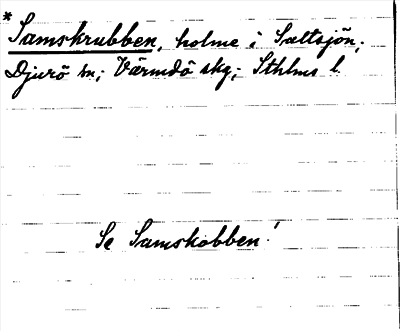 * Samskrubben, holme i Saltsjön;
Djurö sn; Värmdö skg; Sthlms l.
Se Samskobben!